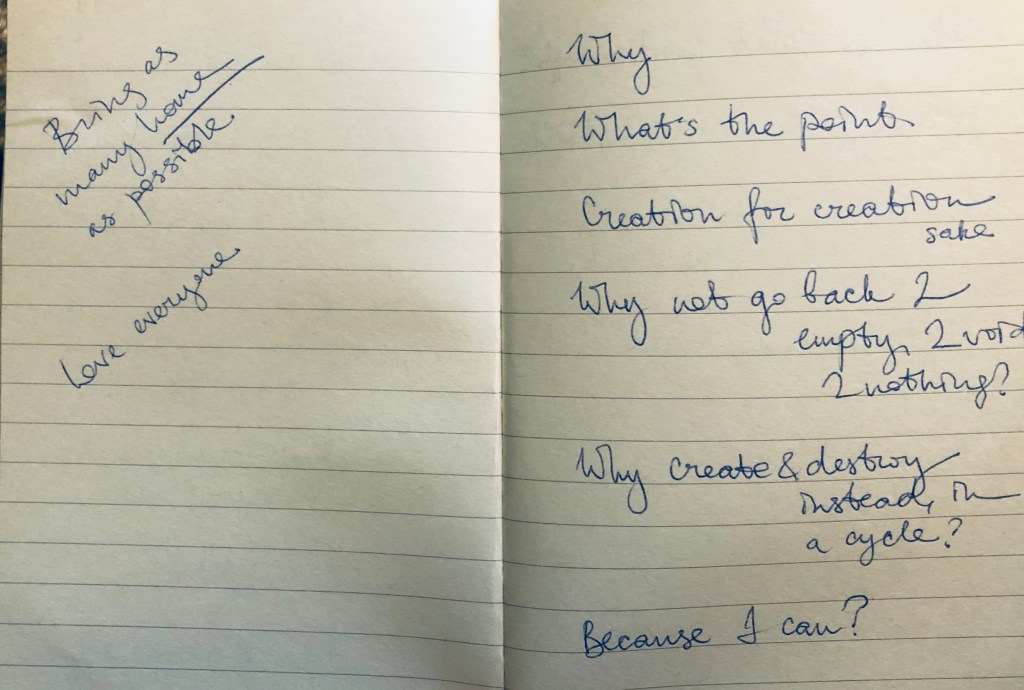 Bring as
many home
as possible
Love everyone
Why
What's the point
Creation for creation
sake
Why not go back 2
empty, 2 void
2 nothing?
Why create & destroy
instead, in
a cycle?
Because I can?